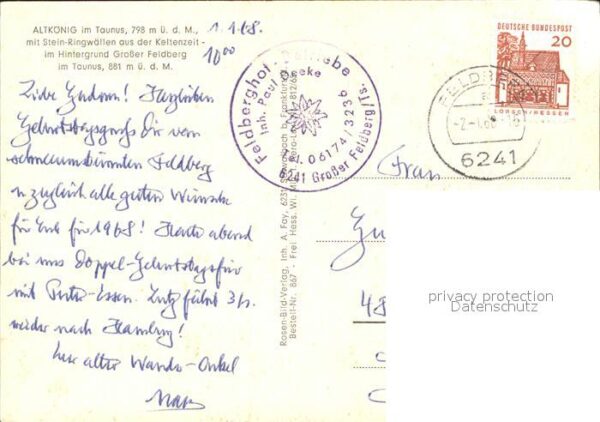 ALTKÖNIG im Taunus, 798 m ü. d. M.,
mit Stein-Ringwällen aus der Keltenzeit -
im Hintergrund Großer Feldberg
im Taunus, 881 m ü. d. M.
1.1.68.
10⁰⁰
Herzlichen
Geburtstagsgruß Dir vom
Feldberg
u zugleich alle guten Wünsche
für Euch für 1968! Heute abend
bei uns Doppel-Geburtstagsfeier
mit Puter-Essen. Lutz fährt 3/1.
wieder nach Hamburg!
Euer alter Wander-Onkel
Feldberghof-Betriebe
Inh. Paul
Tel. 06174/3236
6241 Großer Feldberg/Ts.
Rosen-Bild-Verlag, Inh. A. Fay, 6231 Schwalbach b. Frankfurt
Bestell-Nr. 867. Frei Hess. Wi. Min.
DEUTSCHE BUNDESPOST
20
LORSCH/HESSEN
FELDBERG
-2.-1.68-18
6241
Frau
48
privacy protection
Datenschutz